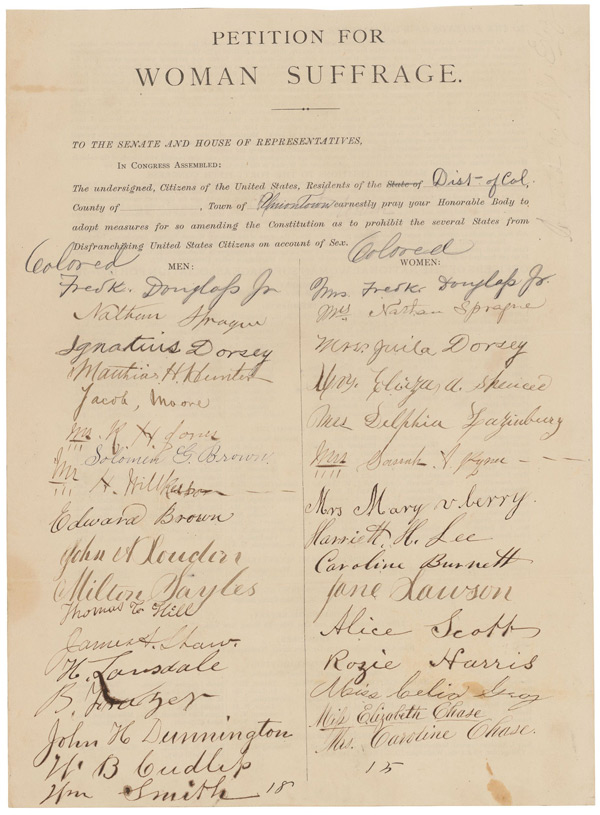 PETITION FOR
WOMAN SUFFRAGE.
TO THE SENATE AND HOUSE OF REPRESENTATIVES,
IN CONGRESS ASSEMBLED:
The undersigned, Citizens of the United States, Residents of the State of Dist- of Col,
County of , Town of Uniontown earnestly pray your Honorable Body to
adopt measures for so amending the Constitution as to prohibit the several States from
Disfranchising United States Citizens on account of Sex.
Colored
MEN:
Fredk. Douglass Jr
Nathan Sprague
Ignatius Dorsey
Matthias H. Hunter
Jacob, Moore
Mr. H. Jones
Solomon G. Brown
Mr N. Hill
Edward Brown
John A Loudon
Milton Sayles
Thomas T. Hill
James H. Shaw.
H. Lansdale
B.
John H Dunnington
W B Cudlip
Wm Smith 18
Colored
WOMEN:
Mrs. Fredk. Douglass Jr.
Mrs Nathan Sprague
Mrs. Juila Dorsey
Mrs. Eliza A. Spencer
Mrs Delphia
Mrs Sarah
Mrs Mary v. berry.
Harriett. H. Lee
Caroline Burnett
Jane Lawson
Alice Scott
Rozie Harris
Miss Celia Gray
Miss Elizabeth Chase
Mrs. Caroline Chase.
15